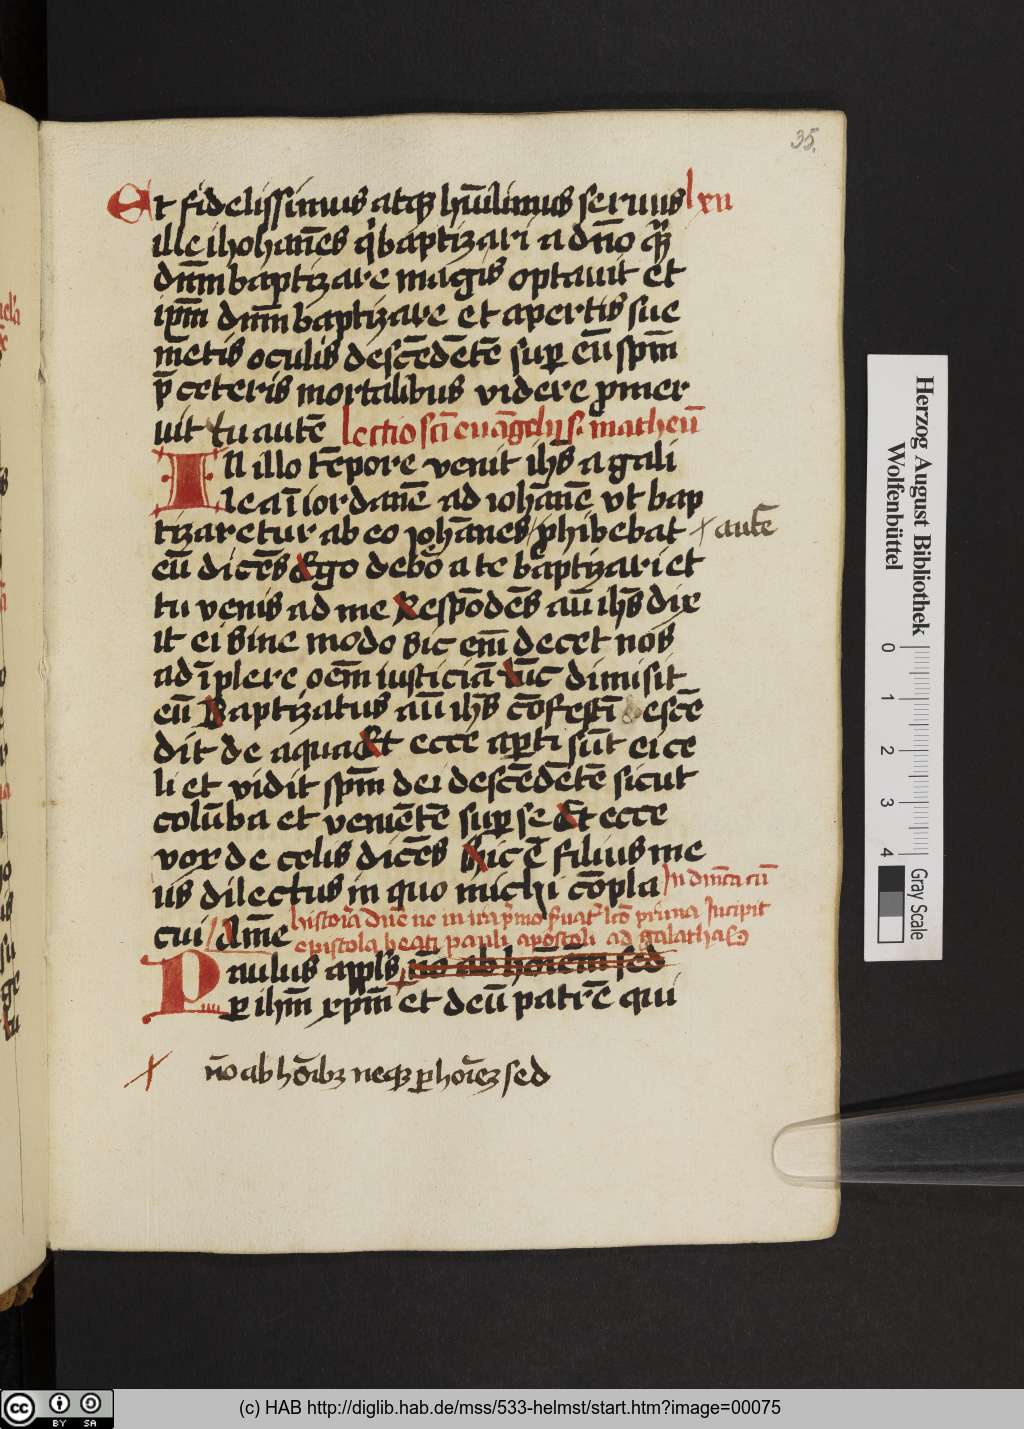 35.
Et fidelissimus atqꝫ hūilimus seruus lxii
ille ihohan̄es q̇ baptizari a dn̄o q̄ꝫ
dn̄m baptizare magis optauit et
ip̄m dn̄m baptizare et apertis sue
mētis oculis descēdētē suꝑ eū spm̄
p̄ ceteris mortalibus videre ꝓmer
uit tu autē lectio sc̄i euāgelij s. matheū
In illo tēpore venit ihs̄ a gali
lea ī iordanē ad iohānē vt bap
tizaretur ab eo iohānes ꝓhibebat + autē
eū dicēs Ego debeo a te baptizari et
tu venis ad me Respōdēs aū ihs̄ dix
it ei sine modo sic em̄ decet nos
ad īplere oēm iusticiā tūc dimisit
eū Baptizatus aū ihs̄ cōfestī escē
dit de aqua Et ecce aꝑti sūt ei ce
li et vidit spm̄ dei descēdētē sicut
colūba et veniētē suꝑ se Et ecce
vox de celis dicēs hic ē filius me
us dilectus in quo michi cōpla
cui Ame In dn̄ica cū
historia Dn̄e ne in ira pmo ẜuat᷒ lc̄o prima Incipit
epistola beati pauli apostoli ad galathas
Paulus appl̄s nō ab hoīem sed
ꝑ ihm̄ xpm̄ et deū patrē qui
+ nō ab hōibꝫ neqꝫ ꝑ hoīeꝫ sed
Herzog August Bibliothek
Wolfenbüttel
0 1 2 3 4
Gray Scale
cc BY SA
(c) HAB http://diglib.hab.de/mss/533-helmst/start.htm?image=00075